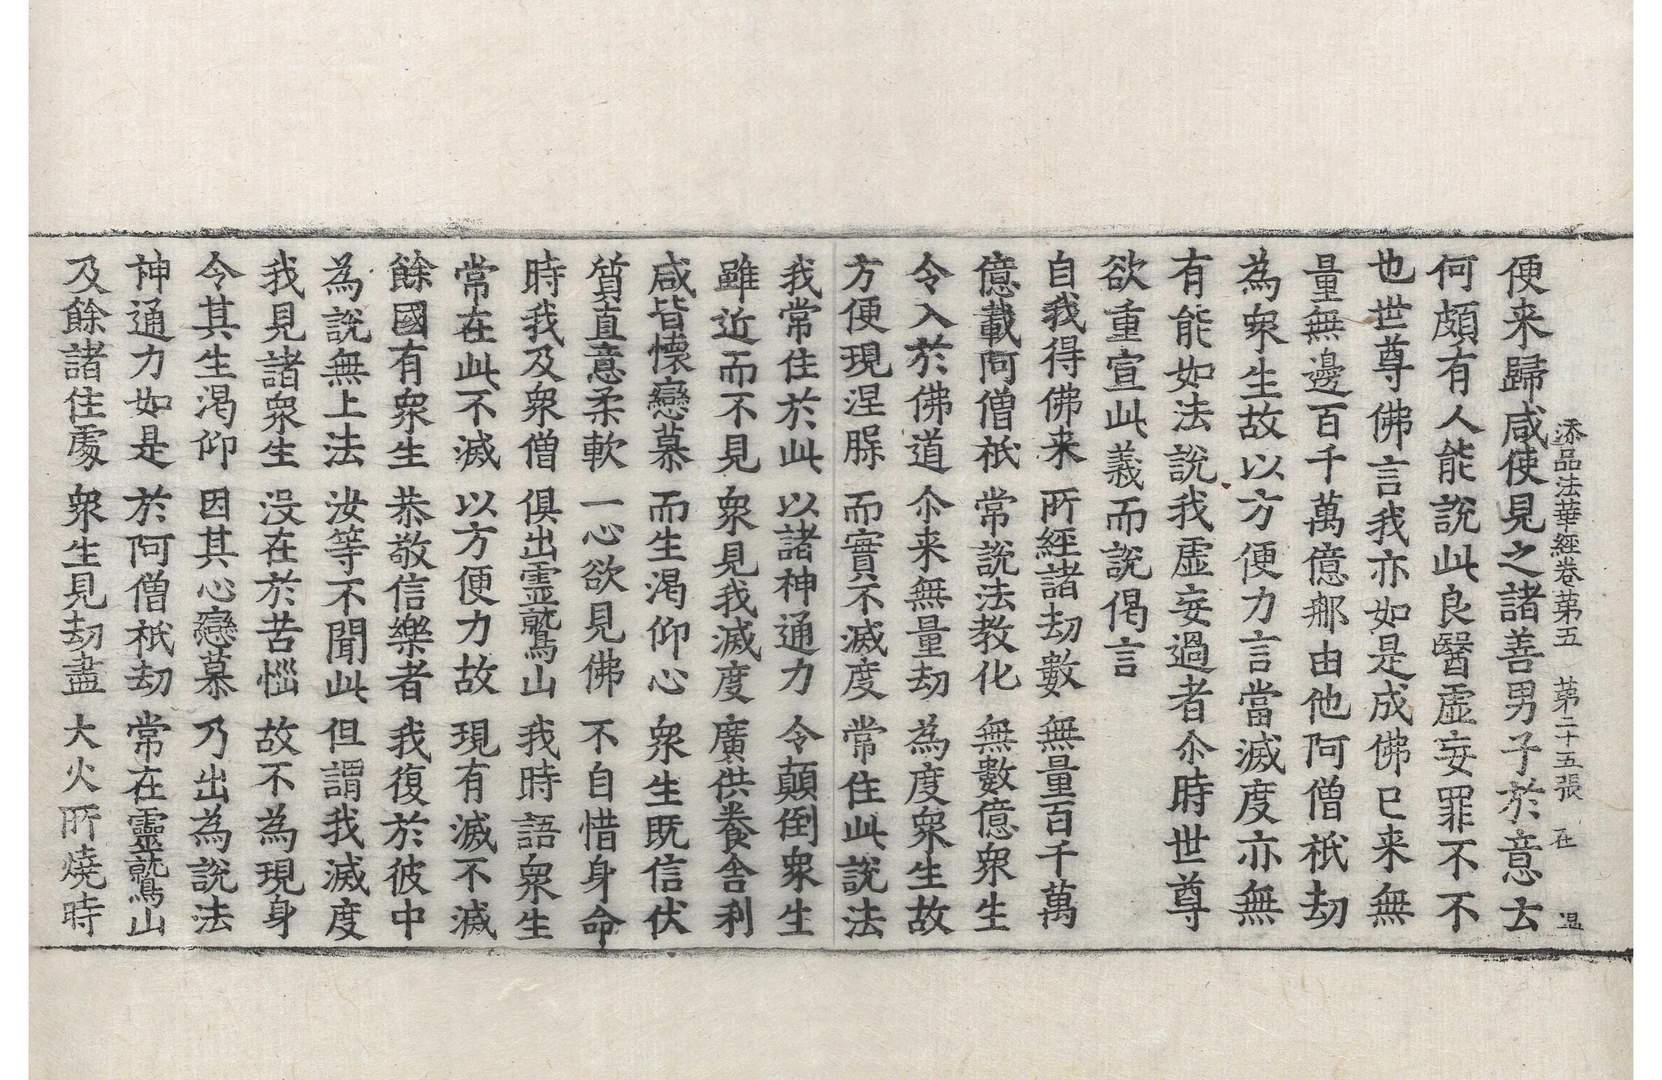 添品法華經卷第五 第二十五張 在 温
便来歸咸使見之諸善男子於意云
何頗有人能說此良醫虛妄罪不不
也世尊佛言我亦如是成佛已来無
量無邊百千萬億那由他阿僧祇劫
為衆生故以方便力言當滅度亦無
有能如法說我虛妄過者尒時世尊
欲重宣此義而說偈言
自我得佛来 所經諸劫數 無量百千萬
億載阿僧祇 常說法教化 無數億衆生
令入於佛道 尒来無量劫 為度衆生故
方便現涅脲 而實不滅度 常住此說法
我常住於此 以諸神通力 令顛倒衆生
雖近而不見 衆見我滅度 廣供養舍利
咸皆懷戀慕 而生渴仰心 衆生既信伏
質直意柔軟 一心欲見佛 不自惜身命
時我及衆僧 俱出霊鷲山 我時語衆生
常在此不滅 以方便力故 現有滅不滅
餘國有衆生 恭敬信樂者 我復於彼中
為說無上法 汝等不聞此 但謂我滅度
我見諸衆生 没在於苦惱 故不為現身
令其生渴仰 因其心戀慕 乃出為說法
神通力如是 於阿僧祇劫 常在靈鷲山
及餘諸住處 衆生見劫盡 大火所燒時